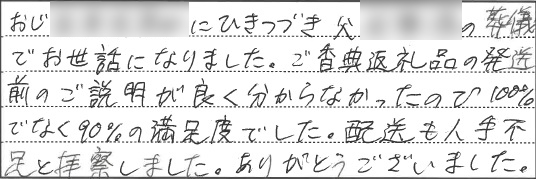 おじ にひきつづき父 の葬儀
でお世話になりました。ご香典返礼品の発送
前のご説明が良く分からなかったので100%
でなく90%の満足度でした。配送も人手不
足と拝察しました。ありがとうございました。